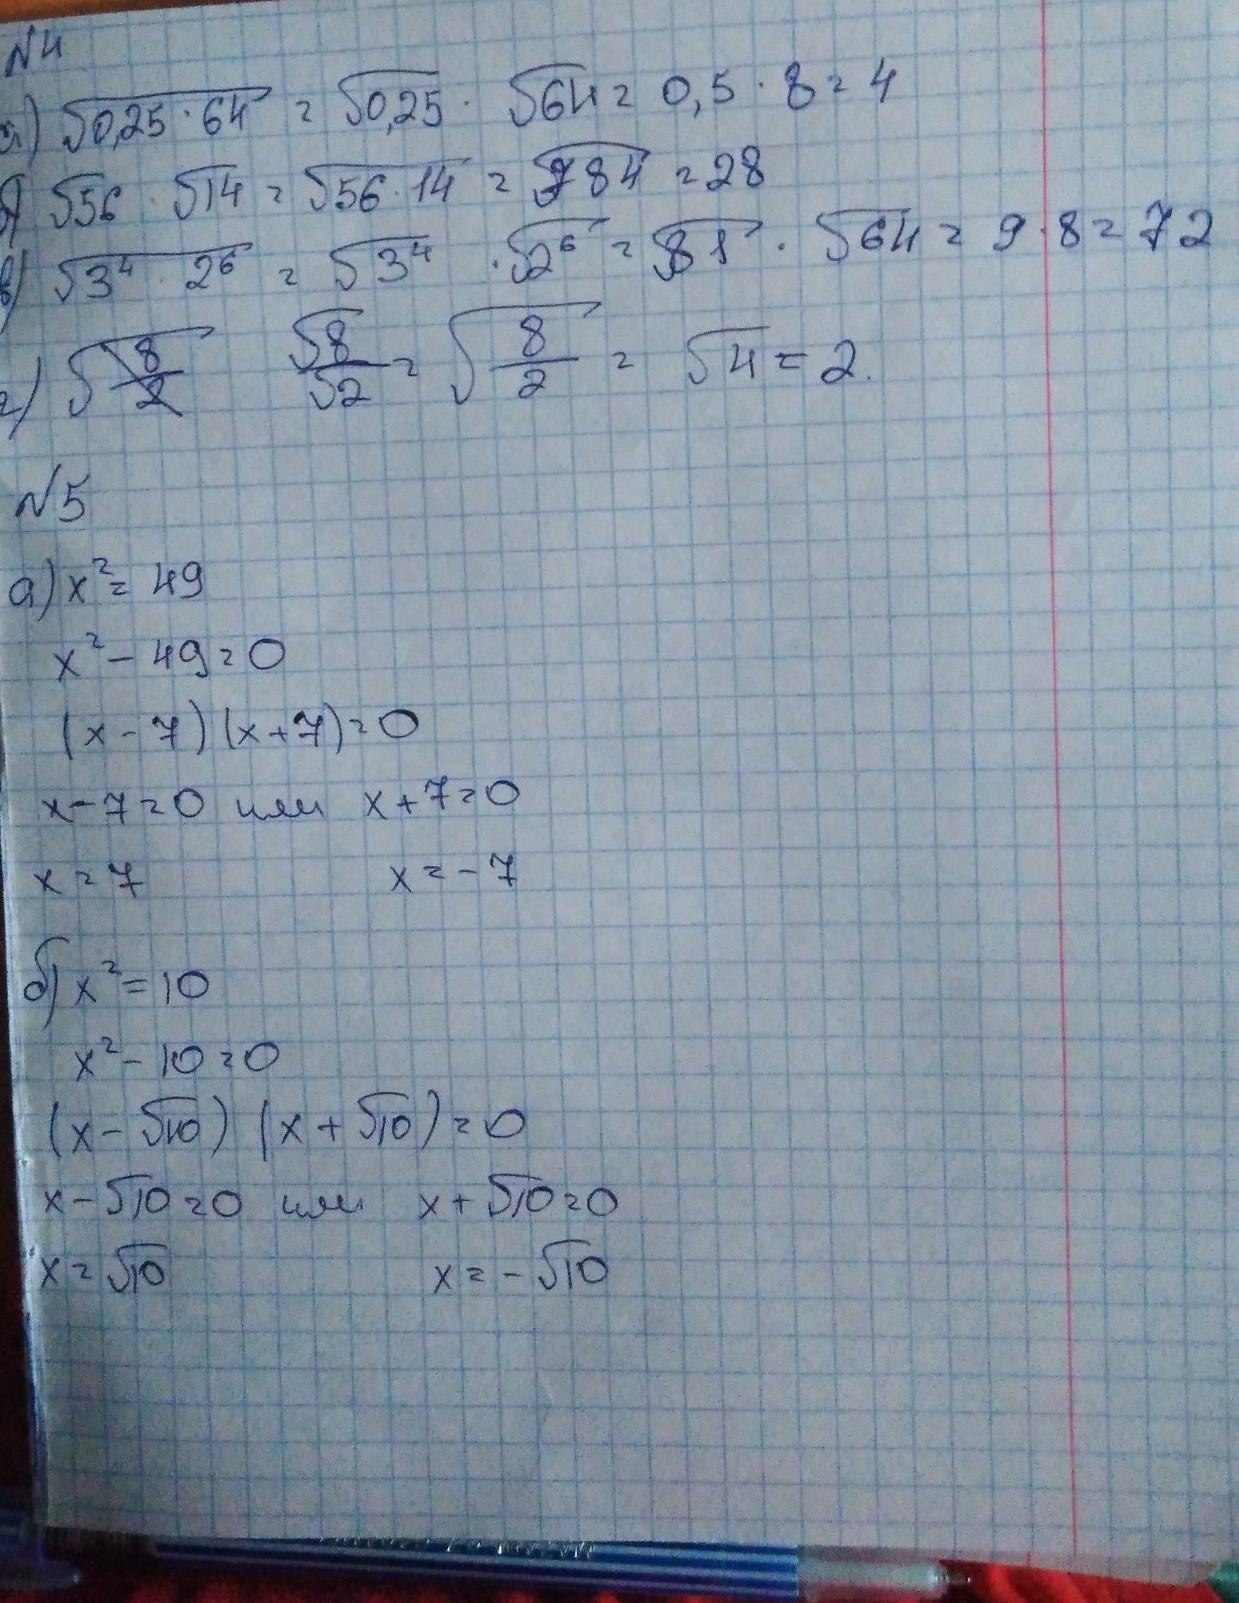 №4
а) √0,25 · 64 = √0,25 · √64 = 0,5 · 8 = 4
б) √56 · √14 = √56 · 14 = √784 = 28
в) √3⁴ · 2⁶ = √3⁴ · √2⁶ = √81 · √64 = 9 · 8 = 72
г) √8/2 √8/√2 = √8/2 = √4 = 2.
№5
а) x² = 49
x² - 49 = 0
(x - 7) (x + 7) = 0
x - 7 = 0 или x + 7 = 0
x = 7 x = - 7
б) x² = 10
x² - 10 = 0
(x - √10) (x + √10) = 0
x - √10 = 0 или x + √10 = 0
x = √10 x = - √10